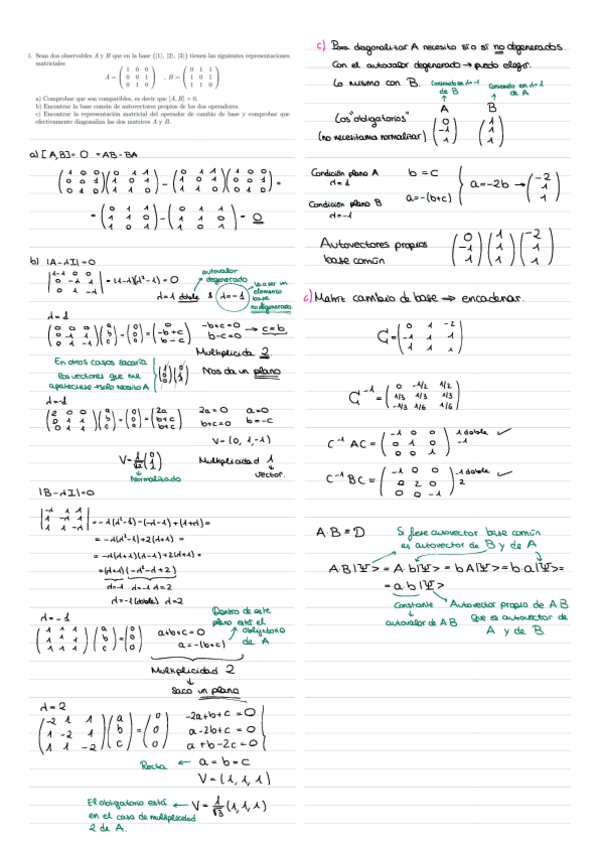 1. Sean dos observables A y B que en la base {|1⟩, |2⟩, |3⟩} tienen las siguientes representaciones
matriciales
A = ( 1 0 0 ; 0 0 1 ; 0 1 0 ) , B = ( 0 1 1 ; 1 0 1 ; 1 1 0 )
a) Comprobar que son compatibles, es decir que [A, B] = 0.
b) Encontrar la base común de autovectores propios de los dos operadores.
c) Encontrar la representación matricial del operador de cambio de base y comprobar que
efectivamente diagonaliza las dos matrices A y B.
a) [A,B] = 0 = AB - BA
( 1 0 0 ; 0 0 1 ; 0 1 0 )( 0 1 1 ; 1 0 1 ; 1 1 0 ) - ( 0 1 1 ; 1 0 1 ; 1 1 0 )( 1 0 0 ; 0 0 1 ; 0 1 0 ) =
= ( 0 1 1 ; 1 1 0 ; 1 0 1 ) - ( 0 1 1 ; 1 1 0 ; 1 0 1 ) = 0
b) |A - λI| = 0
| 1-λ 0 0 ; 0 -λ 1 ; 0 1 -λ | = (1-λ)(λ²-1) = 0
autovalor
degenerado
λ=1 doble & λ=-1
va a ser un
elemento
base
no degenerada
λ=1
( 0 0 0 ; 0 -1 1 ; 0 1 -1 )( a ; b ; c ) = ( 0 ; 0 ; 0 ) = ( 0 ; -b+c ; b-c )
-b+c=0
b-c=0 → c=b
Multiplicida 2
Nos da un plano
En otros casos sacaría
los vectores que me
apareciese
λ=-1
( 2 0 0 ; 0 1 1 ; 0 1 1 )( a ; b ; c ) = ( 0 ; 0 ; 0 ) = ( 2a ; b+c ; b+c )
2a=0 a=0
b+c=0 b=-c
V=(0, 1, -1)
Normalizado
Multiplicidad 1
vector.
|B - λI| = 0
| -λ 1 1 ; 1 -λ 1 ; 1 1 -λ | = -λ(λ²-1) - (-λ-1) + (1+λ) =
= -λ(λ²-1) + 2(λ+1) =
= -λ(λ+1)(λ-1) + 2(λ+1) =
= (λ+1)(-λ²-λ+2)
λ=-1 (doble) λ=2
λ=-1
( 1 1 1 ; 1 1 1 ; 1 1 1 )( a ; b ; c ) = ( 0 ; 0 ; 0 )
a+b+c=0
a=-(b+c)
Dentro de este
plano está el
obligatorio
de A
Multiplicidad 2
Saco un plano
λ=2
( -2 1 1 ; 1 -2 1 ; 1 1 -2 )( a ; b ; c ) = ( 0 ; 0 ; 0 )
-2a+b+c=0
a-2b+c=0
a+b-2c=0
Recta ← a=b=c
V=(1, 1, 1)
El obligatorio está ← V = 1/√3 (1, 1, 1)
en el caso de multiplicidad
2 de A.
c) Para diagonalizar A necesito sí o sí no degenerados.
Con el autovalor degenerado → puedo elegir.
Lo mismo con B.
Contenido en λ=-1
de B
Contenido en λ=1
de A
A B
Los "obligatorios"
(no necesitamos normalizar)
( 0 ; -1 ; 1 ) ( 1 ; 1 ; 1 )
Condición plano A
λ=1
b=c
Condición plano B
λ=-1
a=-(b+c)
a=-2b → ( -2 ; 1 ; 1 )
Autovectores propios
base común
( 0 ; -1 ; 1 ) ( 1 ; 1 ; 1 ) ( -2 ; 1 ; 1 )
c) Matriz cambio de base → encadenar.
C = ( 0 1 -2 ; -1 1 1 ; 1 1 1 )
C⁻¹ = ( 0 -1/2 1/2 ; 1/3 1/3 1/3 ; -1/3 1/6 1/6 )
C⁻¹AC = ( -1 0 0 ; 0 1 0 ; 0 0 1 ) 1 doble ✓
-1
C⁻¹BC = ( -1 0 0 ; 0 2 0 ; 0 0 -1 ) -1 doble ✓
2
A·B = D
Si fuese autovector base común
es autovector de B y de A
A·B|Ψ> = A·b|Ψ> = bA|Ψ> = b·a|Ψ> =
= a·b|Ψ>
Constante
autovalor de AB
Autovector propio de AB
que es autovector de
A y de B